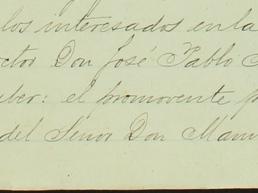 los interesados en la
ctor Don José Pablo
ber: el promovente
del Señor Don Manu